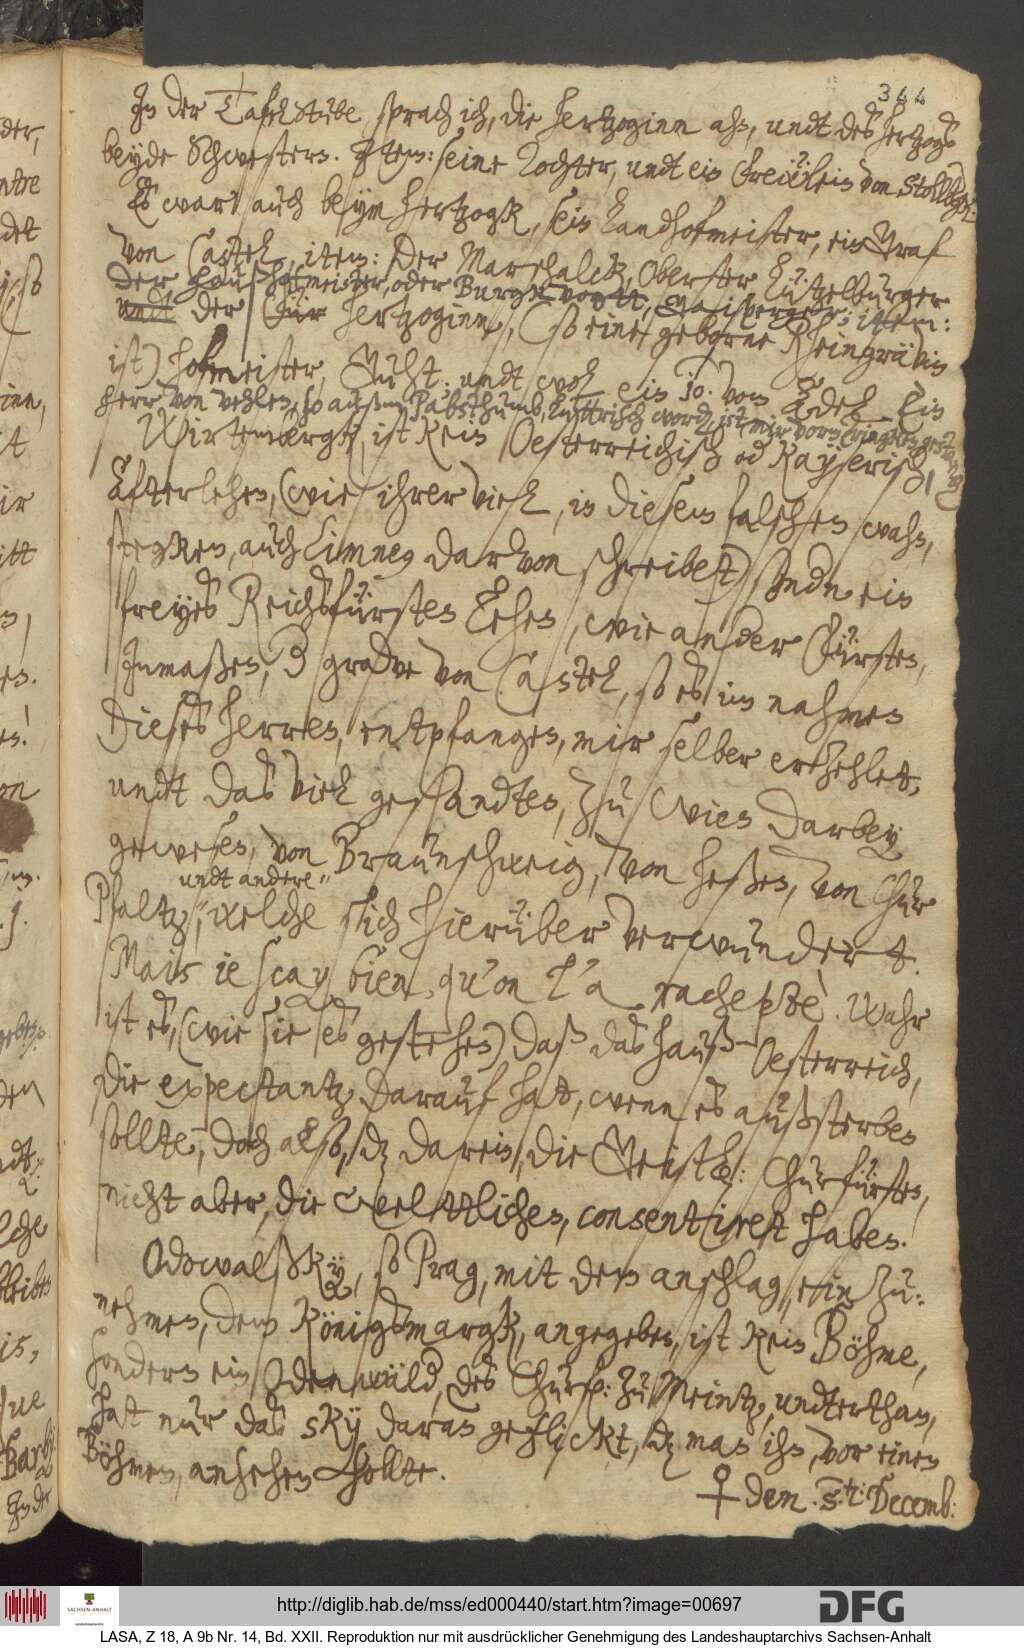 344
In der Tafelstube, sprach ich, die Hertzoginn ahn, undt des Hertzogs
beyde Schwestern. Item: seine Tochter, undt ein Freẅlein von Stolbergk.
Es war auch beym Hertzogk, sein Landhofmeister, ein Graf
von Castel, item: der Marschalck, Oberster Lützelburger
der Haußhofmeister, oder Burgkvogtt, item:
undt der Für Hertzoginn, (so eine geborne Rheingrävin
ist) Hofmeister, undt wol ein 10. vom Adel. Ein
Herr von Vehlen, so außm Pabsthumb, Luttrisch worden, ist mir
Wirtembergk, ist kein Oesterreichisch od Kayserisch,
Afterlehen, (wie ihrer viel, in diesem falschen wahn,
stegken, auch Limneus dardvon schreibet) sondn ein
freyes Reichsfürsten Lehen, wie ander Fürsten,
Inmaßen, 3 gradve von Castel, so es im nahmen
dieses Herren, entpfangen, mir selber ertzehlet,
undt das viel gesandten, zu Wien darbey
gewesen, von Braunschweig, von Heßen, von Chur
undt andere
Pfaltz, welche sich hierüber verwundert.
Mais ie scay bien, qu'on l'a rachepté. Wahr
ist es, (wie sie es gestehen) daß das Hauß Oesterreich,
die expectantz darauf hat, wenn es außsterben
sollte, doch also, dz darein, die Geistl: Churfürsten,
nicht aber, die Weltlichen, consentiret haben.
Odowalßky, so Prag, mit dem anschlag, ein zu:
nehmen, dem Königsmargk, angegeben, ist kein Böhme,
sondern ein Odenwäld, des Churf: zu Meintz, undterthan,
hat nur das sky daran geflickt, dz man ihn, vor einen
Böhmen, ansehen sollte.
♀ den .5.ten: Decemb:
der,
ntre
det
inn,
it
ir
itt
es.
on
Jn der
http://diglib.hab.de/mss/ed000440/start.htm?image=00697
SACHSEN-ANHALT
DFG
LASA, Z 18, A 9b Nr. 14, Bd. XXII. Reproduktion nur mit ausdrücklicher Genehmigung des Landeshauptarchivs Sachsen-Anhalt